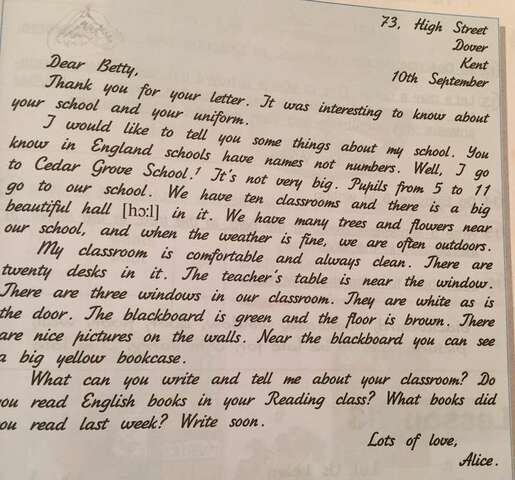 73, High Street
Dover
Kent
10th September
Dear Betty,
Thank you for your letter. It was interesting to know about
your school and your uniform.
I would like to tell you some things about my school. You
know in England schools have names not numbers. Well, I go
to Cedar Grove School.¹ It's not very big. Pupils from 5 to 11
go to our school. We have ten classrooms and there is a big
beautiful hall [hɔ:l] in it. We have many trees and flowers near
our school, and when the weather is fine, we are often outdoors.
My classroom is comfortable and always clean. There are
twenty desks in it. The teacher's table is near the window.
There are three windows in our classroom. They are white as is
the door. The blackboard is green and the floor is brown. There
are nice pictures on the walls. Near the blackboard you can see
a big yellow bookcase.
What can you write and tell me about your classroom? Do
ou read English books in your Reading class? What books did
ou read last week? Write soon.
Lots of love,
Alice.